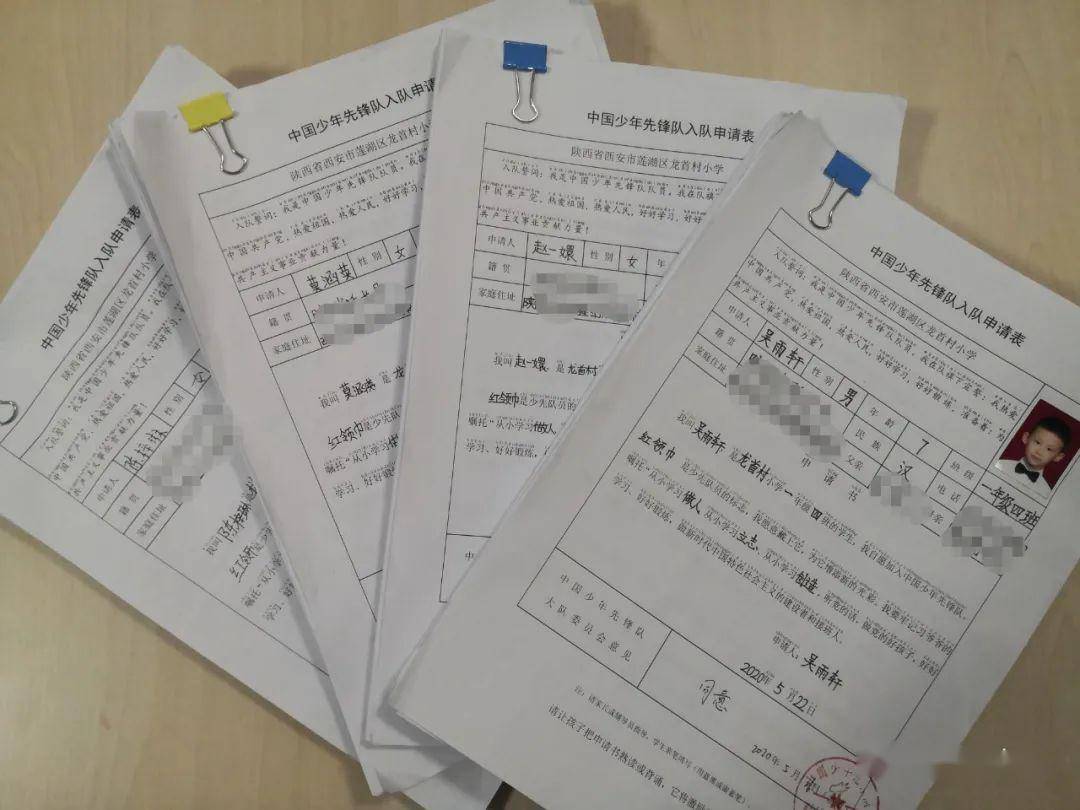 中国少年先锋队入队申请表
陕西省西安市莲湖区龙首村小学
入队誓词：我是中国少年先锋队队员，我在
中国共产党，热爱祖国，热爱人民，好好学习
共产主义事业贡献力量！
申请人
性别 女
籍贯
家庭住址
我叫
红领巾
嘱托“从小学习
学习、好好
中国少年先锋队入队申请表
陕西省西安市莲湖区龙首村小
入队誓词：我是中国少年先锋队队员，我在
中国共产党，热爱祖国，热爱人民，好好学习，
共产主义事业贡献力量！
申请人 莫涵英 性别 女
籍贯
家庭住址
我叫 莫涵英 是龙
红领巾是少先队员
嘱托“从小学习
学习、好好锻炼
中国少年先锋队入队申请表
陕西省西安市莲湖区龙首村小学
入队誓词：我是中国少年先锋队队员，我在队旗下
中国共产党，热爱祖国，热爱人民，好好学习，好好
共产主义事业贡献力量！
申请人 赵一嬛 性别 女 年
籍贯
家庭住址 陕
我叫 赵一嬛 是 龙首村
红领巾是少先队员的
嘱托“从小学习做人
学习、好好锻炼，
中
中国少年先锋队入队申请表
陕西省西安市莲湖区龙首村小学
入队誓词：我是中国少年先锋队队员，我在队旗下宣誓：我热爱
中国共产党，热爱祖国，热爱人民，好好学习，好好锻炼，准备着：为
共产主义事业贡献力量！
申请人 吴雨轩 性别 男 年龄 7 班级 一年级四班
籍贯 民族 汉 电话
家庭住址 父亲 母亲
申请书
我叫 吴雨轩 是 龙首村 小学 一 年级 四 班的学生，我自愿加入中国少年先锋队。
红领巾 是少先队员的标志，我愿意戴上它，为它增添新的光彩。我要牢记习爷爷的
嘱托“从小学习 做人、从小学习 立志、从小学习 创造，听党的话，做党的好孩子，好好
学习、好好锻炼，做新时代中国特色社会主义的建设者和接班人。
申请人：吴雨轩
2020年5月22日
中国少年先锋队
大队委员会意见
同意
2020年5月
注：请家长或辅导员指导，学生亲笔填写
请让孩子把申请书熟读或背诵，它将激励